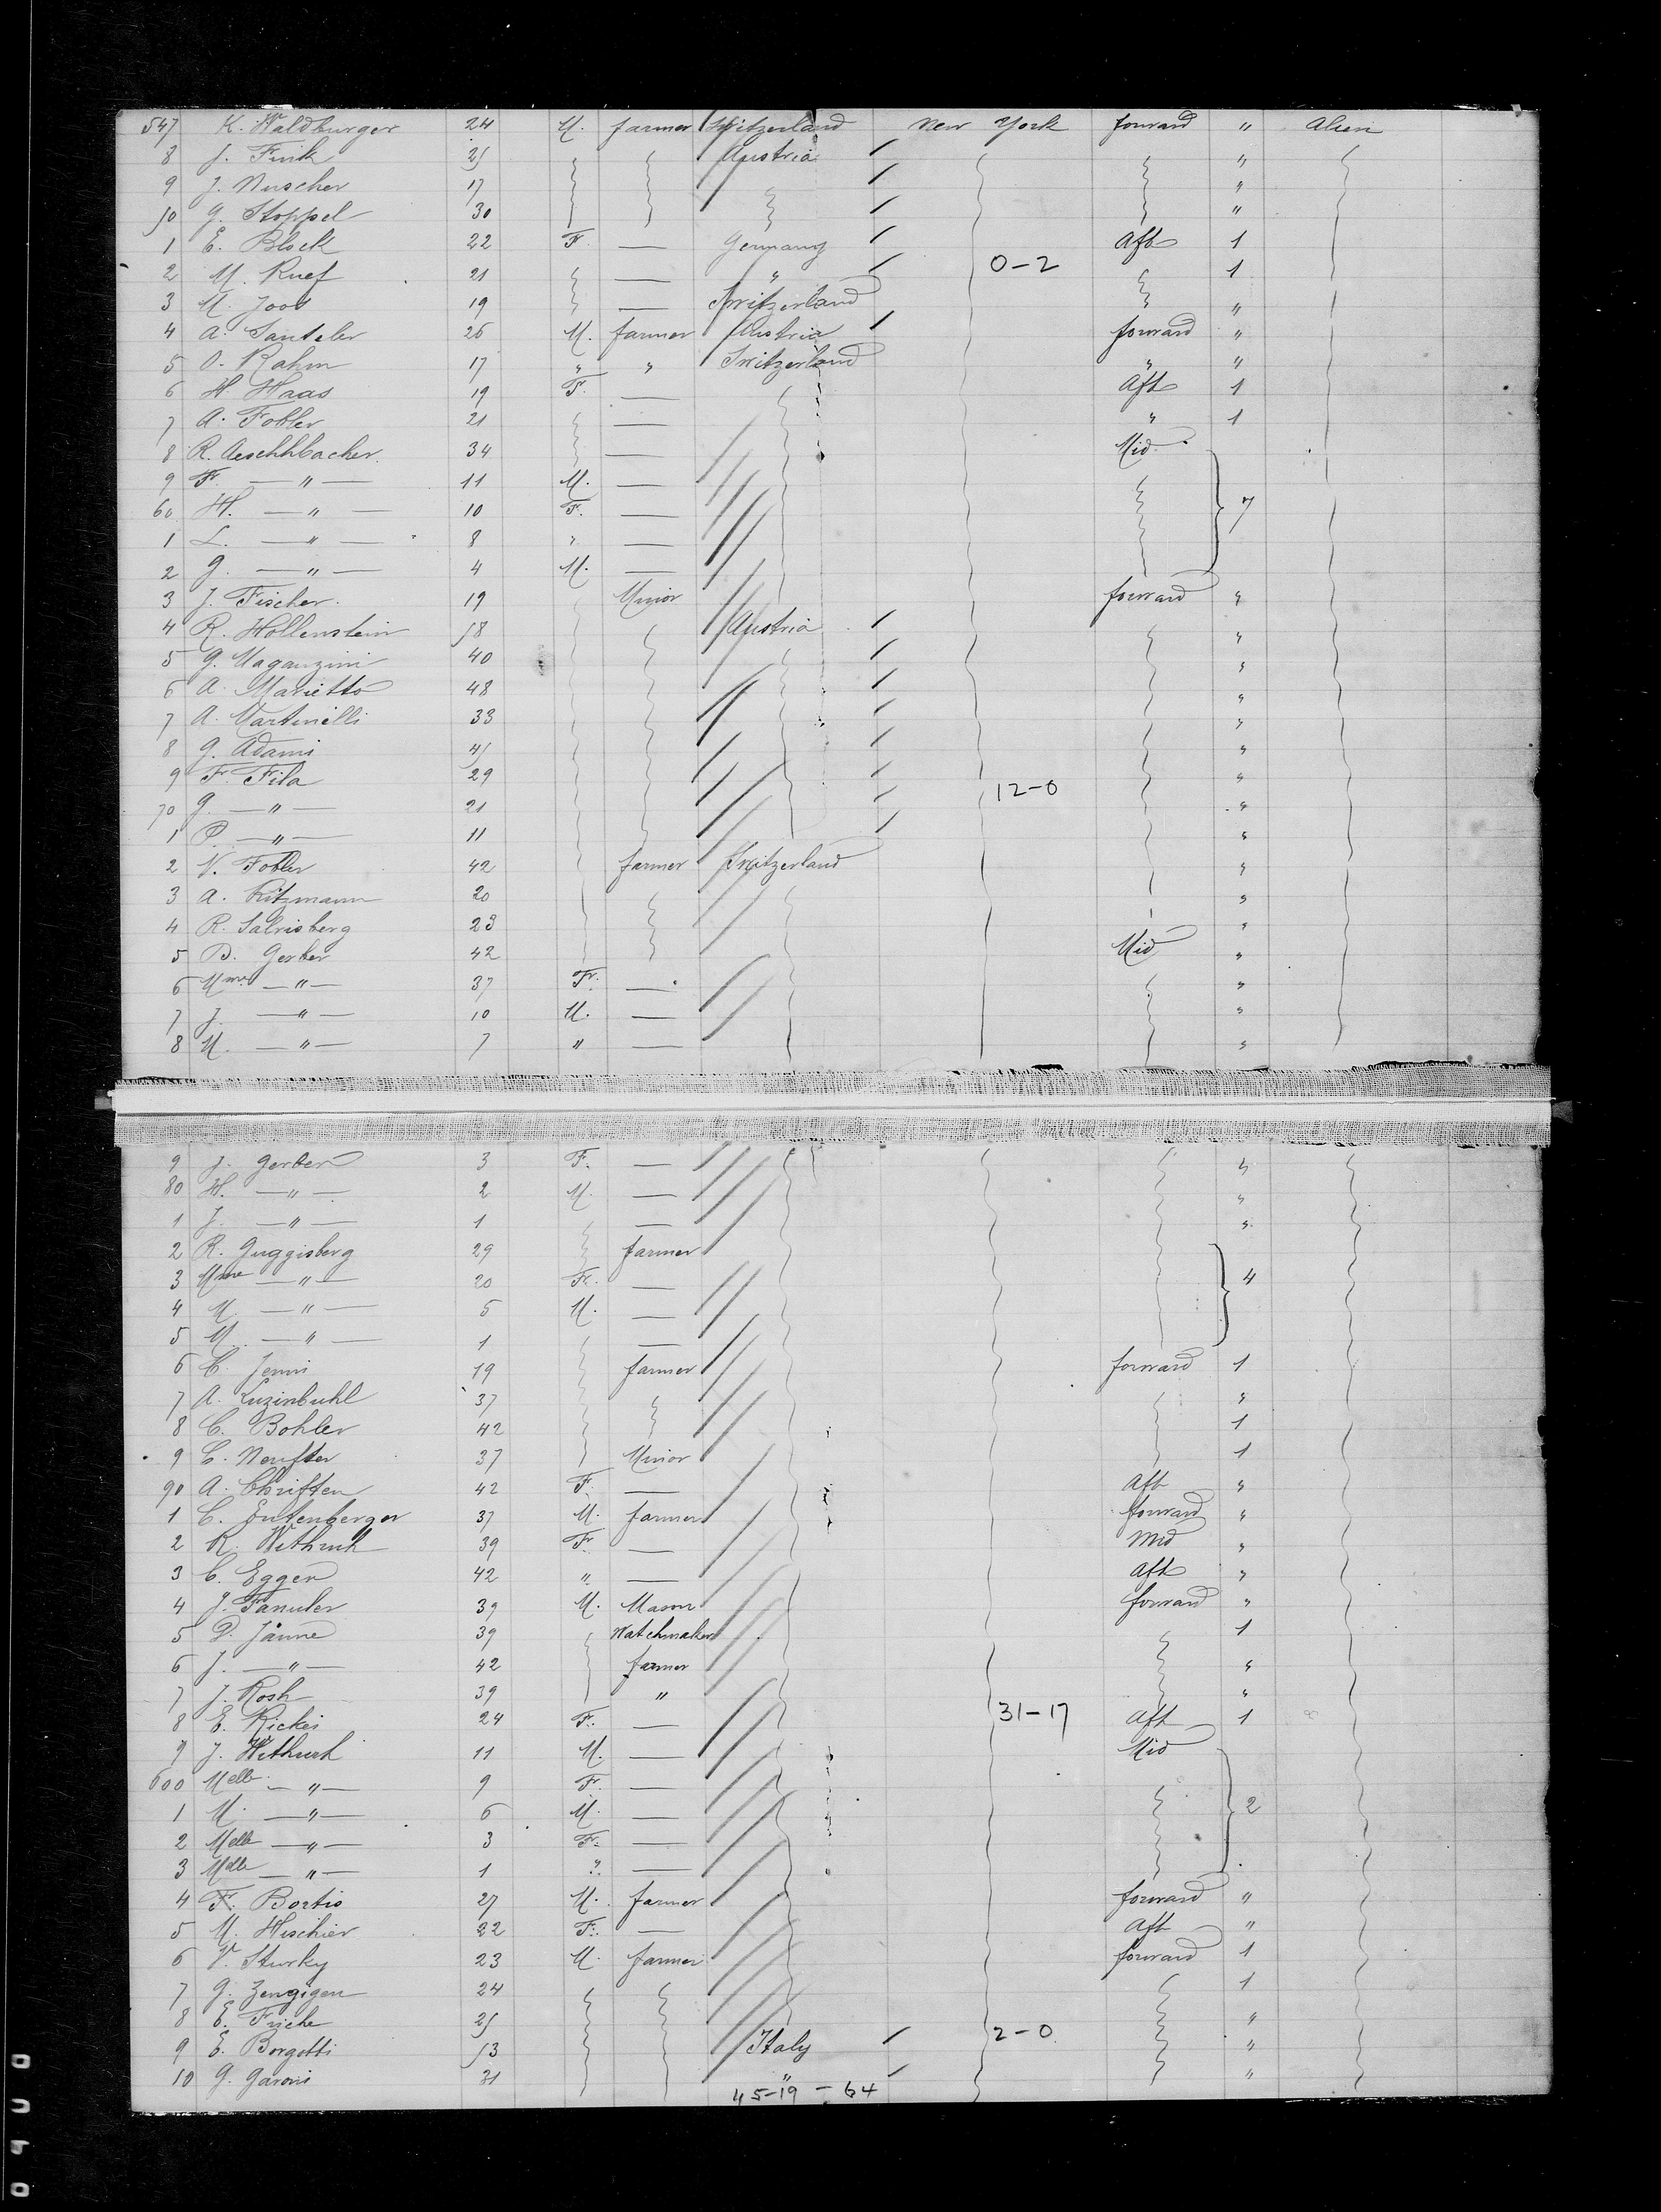 547 K. Waldburger 24 M. farmer Switzerland New York forward " Alien
8 J. Fink 25 Austria "
9 J. Nuscher 17 "
50 G. Stoppel 30 "
1 E. Block 22 F. — Germany Aft 1
2 M. Ruef 21 — " 0-2 1
3 M. Joos 19 — Switzerland "
4 A. Santeler 26 M. farmer Austria forward "
5 O. Rahm 17 " " Switzerland " "
6 H. Haas 19 F. — Aft 1
7 A. Tobler 21 — " 1
8 R. Aeschhbacher 34 — Mid
9 F. — " — 11 M. —
60 H. — " — 10 F. — 7
1 L. — " — 8 " —
2 G. — " — 4 M. —
3 J. Fischer 19 Minor forward "
4 R. Hollenstein 18 Austria "
5 G. Maganzini 40 "
6 A. Marietto 48 "
7 A. Martinelli 33 "
8 G. Adami 45 "
9 F. Fila 29 "
70 G. — " — 21 12-0 "
1 P. — " — 11 "
2 V. Tobler 42 farmer Switzerland "
3 A. Kitzmann 20 "
4 R. Salvisberg 23 "
5 D. Gerber 42 Mid "
6 Mme — " — 37 F. — "
7 J. — " — 10 M. — "
8 M. — " — 7 " — "
9 J. Gerber 3 F. — "
80 H. — " — 2 M. — "
1 J. — " — 1 — "
2 R. Guggisberg 29 farmer
3 Mme — " — 20 F. — 4
4 M. — " — 5 M. —
5 M. — " — 1 —
6 C. Jenni 19 farmer forward 1
7 A. Luzinbuhl 37 "
8 C. Bohler 42 1
9 C. Neufter 37 Minor 1
90 A. Christen 42 F. — Aft "
1 C. Entenberger 37 M. farmer forward "
2 R. Wethrich 39 F. — Mid "
3 C. Eggen 42 " — Aft "
4 J. Tanuler 39 M. Mason forward "
5 P. Janne 39 Watchmaker 1
6 J. — " — 42 farmer "
7 J. Rosh 39 " "
8 E. Rickei 24 F. — 31-17 Aft 1
9 J. Wethurh 11 M. — Mid
600 Melle — " — 9 F. —
1 M. — " — 6 M. — 2
2 Melle — " — 3 F. —
3 Melle — " — 1 " —
4 F. Bortis 27 M. farmer forward "
5 M. Hischier 22 F. — Aft "
6 V. Sturky 23 M. farmer forward 1
7 G. Zengigen 24 1
8 E. Friche 25 "
9 E. Borgotti 53 Italy 2-0 "
10 G. Garoni 31 " "
45-19-64
0900